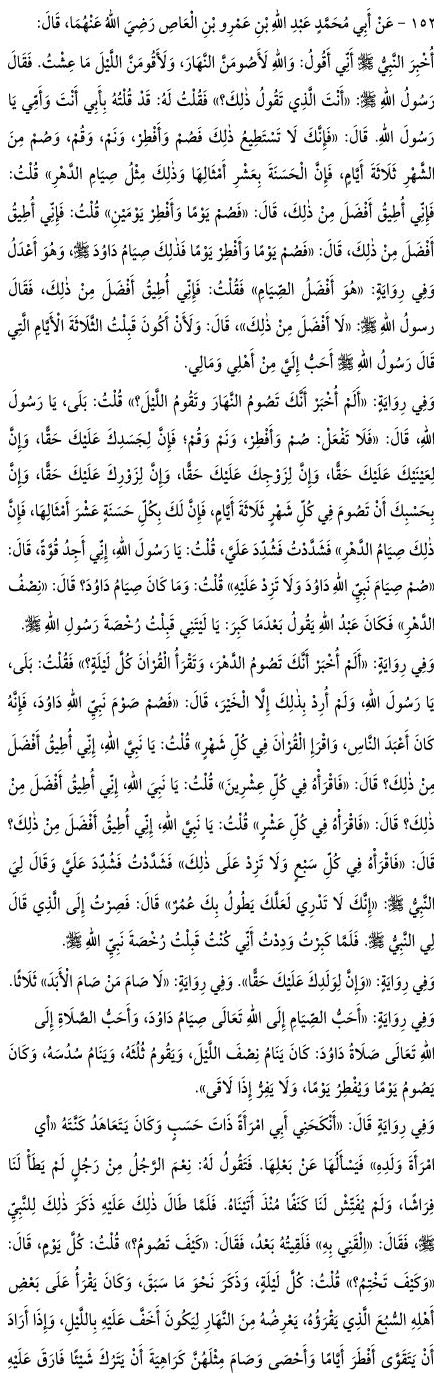 ١٥٢ - عَنْ أَبِي مُحَمَّدٍ عَبْدِ اللهِ بْنِ عَمْرِو بْنِ الْعَاصِ رَضِيَ اللهُ عَنْهُمَا، قَالَ:
أُخْبِرَ النَّبِيُّ ﷺ أَنِّي أَقُولُ: وَاللهِ لَأَصُومَنَّ النَّهَارَ، وَلَأَقُومَنَّ اللَّيْلَ مَا عِشْتُ. فَقَالَ
رَسُولُ اللهِ ﷺ: «أَنْتَ الَّذِي تَقُولُ ذٰلِكَ؟» فَقُلْتُ لَهُ: قَدْ قُلْتُهُ بِأَبِي أَنْتَ وَأُمِّي يَا
رَسُولَ اللهِ. قَالَ: «فَإِنَّكَ لَا تَسْتَطِيعُ ذٰلِكَ فَصُمْ وَأَفْطِرْ، وَنَمْ، وَقُمْ، وَصُمْ مِنَ
الشَّهْرِ ثَلَاثَةَ أَيَّامٍ، فَإِنَّ الْحَسَنَةَ بِعَشْرِ أَمْثَالِهَا وَذٰلِكَ مِثْلُ صِيَامِ الدَّهْرِ» قُلْتُ:
فَإِنِّي أُطِيقُ أَفْضَلَ مِنْ ذٰلِكَ، قَالَ: «فَصُمْ يَوْمًا وَأَفْطِرْ يَوْمَيْنِ» قُلْتُ: فَإِنِّي أُطِيقُ
أَفْضَلَ مِنْ ذٰلِكَ، قَالَ: «فَصُمْ يَوْمًا وَأَفْطِرْ يَوْمًا فَذٰلِكَ صِيَامُ دَاوُدَ ﷺ، وَهُوَ أَعْدَلُ
وَفِي رِوَايَةٍ: «هُوَ أَفْضَلُ الصِّيَامِ» فَقُلْتُ: فَإِنِّي أُطِيقُ أَفْضَلَ مِنْ ذٰلِكَ، فَقَالَ
رسولُ اللهِ ﷺ: «لَا أَفْضَلَ مِنْ ذٰلِكَ»، قَالَ: وَلَأَنْ أَكُونَ قَبِلْتُ الثَّلَاثَةَ الْأَيَّامِ الَّتِي
قَالَ رَسُولُ اللهِ ﷺ أَحَبُّ إِلَيَّ مِنْ أَهْلِي وَمَالِي.
وَفِي رِوَايَةٍ: «أَلَمْ أُخْبَرْ أَنَّكَ تَصُومُ النَّهَارَ وتَقُومُ اللَّيْلَ؟» قُلْتُ: بَلَى، يَا رَسُولَ
اللهِ، قَالَ: «فَلَا تَفْعَلْ: صُمْ وَأَفْطِرْ، وَنَمْ وَقُمْ؛ فَإِنَّ لِجَسَدِكَ عَلَيْكَ حَقًّا، وَإِنَّ
لِعَيْنَيْكَ عَلَيْكَ حَقًّا، وَإِنَّ لِزَوْجِكَ عَلَيْكَ حَقًّا، وَإِنَّ لِزَوْرِكَ عَلَيْكَ حَقًّا، وَإِنَّ
بِحَسْبِكَ أَنْ تَصُومَ فِي كُلِّ شَهْرٍ ثَلَاثَةَ أَيَّامٍ، فَإِنَّ لَكَ بِكُلِّ حَسَنَةٍ عَشْرَ أَمْثَالِهَا، فَإِنَّ
ذٰلِكَ صِيَامُ الدَّهْرِ» فَشَدَّدْتُ فَشُدِّدَ عَلَيَّ، قُلْتُ: يَا رَسُولَ اللهِ، إِنِّي أَجِدُ قُوَّةً، قَالَ:
«صُمْ صِيَامَ نَبِيِّ اللهِ دَاوُدَ وَلَا تَزِدْ عَلَيْهِ» قُلْتُ: وَمَا كَانَ صِيَامُ دَاوُدَ؟ قَالَ: «نِصْفُ
الدَّهْرِ» فَكَانَ عَبْدُ اللهِ يَقُولُ بَعْدَمَا كَبِرَ: يَا لَيْتَنِي قَبِلْتُ رُخْصَةَ رَسُولِ اللهِ ﷺ.
وَفِي رِوَايَةٍ: «أَلَمْ أُخْبَرْ أَنَّكَ تَصُومُ الدَّهْرَ، وَتَقْرَأُ الْقُرْاٰنَ كُلَّ لَيْلَةٍ؟» فَقُلْتُ: بَلَى،
يَا رَسُولَ اللهِ، وَلَمْ أُرِدْ بِذٰلِكَ إِلَّا الْخَيْرَ، قَالَ: «فَصُمْ صَوْمَ نَبِيِّ اللهِ دَاوُدَ، فَإِنَّهُ
كَانَ أَعْبَدَ النَّاسِ، وَاقْرَإِ الْقُرْاٰنَ فِي كُلِّ شَهْرٍ» قُلْتُ: يَا نَبِيَّ اللهِ، إِنِّي أُطِيقُ أَفْضَلَ
مِنْ ذٰلِكَ؟ قَالَ: «فَاقْرَأْهُ فِي كُلِّ عِشْرِينَ» قُلْتُ: يَا نَبِيَ اللهِ، إِنِّي أُطِيقُ أَفْضَلَ مِنْ
ذٰلِكَ؟ قَالَ: «فَاقْرَأْهُ فِي كُلِّ عَشْرٍ» قُلْتُ: يَا نَبِيَّ اللهِ، إِنِّي أُطِيقُ أَفْضَلَ مِنْ ذٰلِكَ؟
قَالَ: «فَاقْرَأْهُ فِي كُلِّ سَبْعٍ وَلَا تَزِدْ عَلَى ذٰلِكَ» فَشَدَّدْتُ فَشُدِّدَ عَلَيَّ وَقَالَ لِيَ
النَّبِيُّ ﷺ: «إِنَّكَ لَا تَدْرِي لَعَلَّكَ يَطُولُ بِكَ عُمُرٌ» قَالَ: فَصِرْتُ إِلَى الَّذِي قَالَ
لِي النَّبِيُّ ﷺ. فَلَمَّا كَبِرْتُ وَدِدْتُ أَنِّي كُنْتُ قَبِلْتُ رُخْصَةَ نَبِيِّ اللهِ ﷺ.
وَفِي رِوَايَةٍ: «وَإِنَّ لِوَلَدِكَ عَلَيْكَ حَقًّا». وَفِي رِوَايَةٍ: «لَا صَامَ مَنْ صَامَ الْأَبَدَ» ثَلَاثًا.
وَفِي رِوَايَةٍ: «أَحَبُّ الصِّيَامِ إِلَى اللهِ تَعَالَى صِيَامُ دَاوُدَ، وَأَحَبُّ الصَّلَاةِ إِلَى
اللهِ تَعَالَى صَلَاةُ دَاوُدَ: كَانَ يَنَامُ نِصْفَ اللَّيْلِ، وَيَقُومُ ثُلُثَهُ، وَيَنَامُ سُدُسَهُ، وَكَانَ
يَصُومُ يَوْمًا وَيُفْطِرُ يَوْمًا، وَلَا يَفِرُّ إِذَا لَاقَى».
وَفِي رِوَايَةٍ قَالَ: «أَنْكَحَنِي أَبِي امْرَأَةً ذَاتَ حَسَبٍ وَكَانَ يَتَعَاهَدُ كَنَّتَهُ «أي
امْرَأَةَ وَلَدِهِ» فَيَسْأَلُهَا عَنْ بَعْلِهَا. فَتَقُولُ لَهُ: نِعْمَ الرَّجُلُ مِنْ رَجُلٍ لَمْ يَطَأْ لَنَا
فِرَاشًا، وَلَمْ يُفَتِّشْ لَنَا كَنَفًا مُنْذُ أَتَيْنَاهُ. فَلَمَّا طَالَ ذٰلِكَ عَلَيْهِ ذَكَرَ ذٰلِكَ لِلنَّبِيِّ
ﷺ، فَقَالَ: «اِلْقَنِي بِهِ» فَلَقِيتُهُ بَعْدُ، فَقَالَ: «كَيْفَ تَصُومُ؟» قُلْتُ: كُلَّ يَوْمٍ، قَالَ:
«وَكَيْفَ تَخْتِمُ؟» قُلْتُ: كُلَّ لَيْلَةٍ، وَذَكَرَ نَحْوَ مَا سَبَقَ، وَكَانَ يَقْرَأُ عَلَى بَعْضِ
أَهْلِهِ السُّبُعَ الَّذِي يَقْرَؤُهُ، يَعْرِضُهُ مِنَ النَّهَارِ لِيَكُونَ أَخَفَّ عَلَيْهِ بِاللَّيْلِ، وَإِذَا أَرَادَ
أَنْ يَتَقَوَّى أَفْطَرَ أَيَّامًا وَأَحْصَى وَصَامَ مِثْلَهُنَّ كَرَاهِيَةَ أَنْ يَتْرُكَ شَيْئًا فَارَقَ عَلَيْهِ